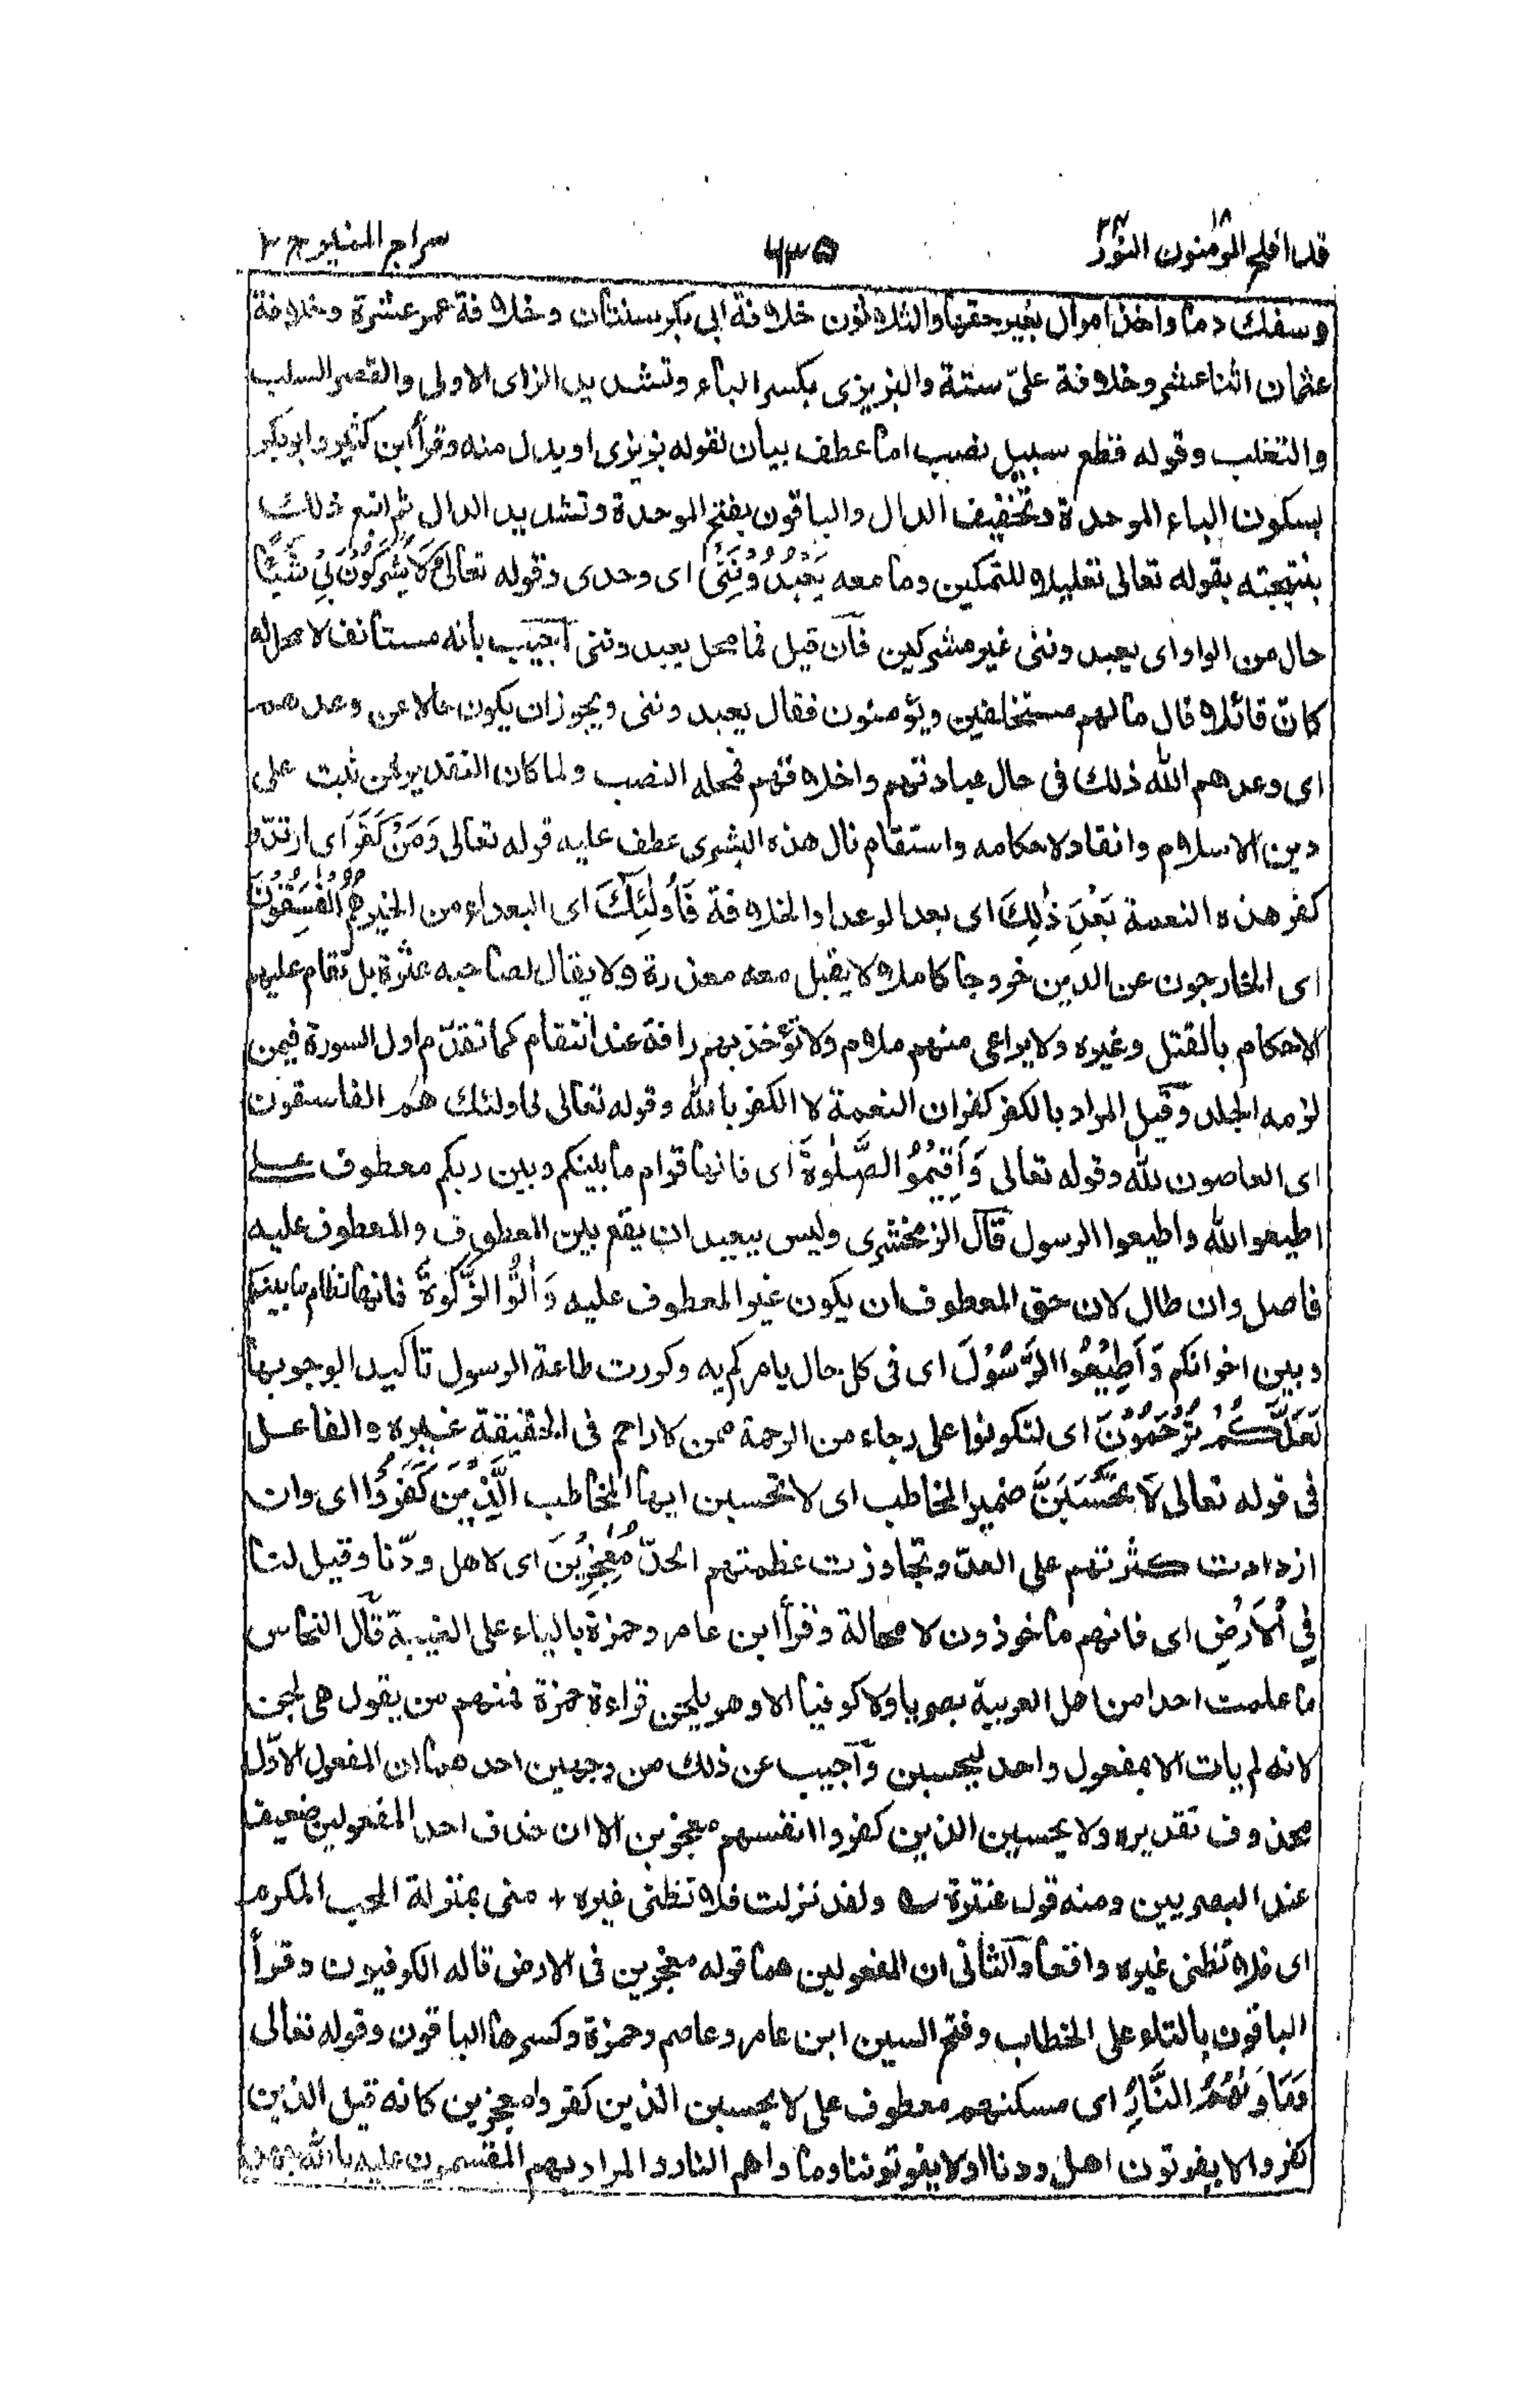 قد افلح المؤمنون ١٨ النور ٢٤
٦٣٥
سراج المنير ج ٢
وسفك دما واخذ اموال بغير حقها والثلاثون خلافة ابي بكر سنتان وخلافة عمر عشرة وخلافة
عثمان اثنا عشر وخلافة عليّ ستة والبزيزى بكسر الباء وتشديد الزاى الاولى والقصر السلب
والتغلب وقوله قطع سبيل نصب اما عطف بيان لقوله بزيزى او بدل منه وقرأ ابن كثير وابو بكر
بسكون الباء الموحدة وتخفيف الدال والباقون بفتح الموحدة وتشديد الدال ثم اتبع ذلك
بنتيجته بقوله تعالى تعليلا للتمكين وما معه يَعْبُدُوْنَنِيْ اى وحدى وقوله تعالى لَا يُشْرِكُوْنَ بِيْ شَيْئًا
حال من الواو اى يعبدوننى غير مشركين فان قيل فما محل يعبدوننى اجيب بانه مستأنف لا محل له
كانّ قائلا قال ما لهم مستخلفين ويؤمنون فقال يعبدوننى ويجوز ان يكون حالا عن وعدهم
اى وعدهم الله ذلك فى حال عبادتهم واخلاقهم فمحله النصب ولما كان التقدير فمن ثبت على
دين الاسلام وانقاد لاحكامه واستقام نال هذه البشرى عطف عليه قوله تعالى وَمَنْ كَفَرَ اى ارتدّ و
كفر هذه النعمة بَعْدَ ذٰلِكَ اى بعد الوعد او الخلافة فَاُولٰٓئِكَ اى البعداء من الخير هُمُ الْفٰسِقُوْنَ
اى الخارجون عن الدين خروجا كاملا لا يقبل معه معذرة ولا يقال لصاحبه عثرة بل تقام عليهم
الاحكام بالقتل وغيره ولا يراعى منهم ملام ولا تؤخذ بهم رافة عند انتقام كما تقدّم اول السورة فيمن
لزمه الجلد وقيل المراد بالكفر كفران النعمة لا الكفر بالله وقوله تعالى فاولئك هم الفاسقون
اى العاصون لله وقوله تعالى وَاَقِيْمُوا الصَّلٰوةَ اى فانها قوام ما بينكم وبين ربكم معطوف على
اطيعوا الله واطيعوا الرسول قال الزمخشرى وليس ببعيد ان يقع بين المعطوف والمعطوف عليه
فاصل وان طال لان حق المعطوف ان يكون غير المعطوف عليه وَاٰتُوا الزَّكٰوةَ فانها نظام ما بينكم
وبين اخوانكم وَاَطِيْعُوا الرَّسُوْلَ اى فى كل حال يامركم به وكررت طاعة الرسول تأكيدا لوجوبها
لَعَلَّكُمْ تُرْحَمُوْنَ اى لتكونوا على رجاء من الرحمة ممن لا راحم فى الحقيقة غيره والفاعل
فى قوله تعالى لَا تَحْسَبَنَّ ضمير المخاطب اى لا تحسبن ايها المخاطب الَّذِيْنَ كَفَرُوْا اى وان
ازدادت كثرتهم على العدّ وتجاوزت عظمتهم الحدّ مُعْجِزِيْنَ اى لاهل ودّنا وقيل لنا
فِي الْاَرْضِ اى فانهم مأخوذون لا محالة وقرأ ابن عامر وحمزة بالياء على الغيبة قال النحاس
ما علمت احدا من اهل العربية بصريا ولا كوفيا الا وهو يلحن قراءة حمزة فمنهم من يقول هى لحن
لانه لم يات الا بمفعول واحد ليحسبن واجيب عن ذلك من وجهين احدهما ان المفعول الاوّل
محذوف تقديره ولا يحسبن الذين كفروا انفسهم معجزين الا ان حذف احد المفعولين ضعيف
عند البصريين ومنه قول عنترة ؎ ولقد نزلت فلا تظنى غيره + منى بمنزلة المحب المكرم
اى فلا تظنى غيره واقعا والثانى ان المفعولين هما قوله معجزين فى الارض قاله الكوفيون وقرأ
الباقون بالتاء على الخطاب وفتح السين ابن عامر وعاصم وحمزة وكسرها الباقون وقوله تعالى
وَمَاْوٰىهُمُ النَّارُ اى مسكنهم معطوف على لا يحسبن الذين كفروا معجزين كانه قيل الذين
كفروا لا يفوتون اهل ودنا او لا يفوتوننا وماواهم النار والمراد بهم المقسمون عليه بالله جهد